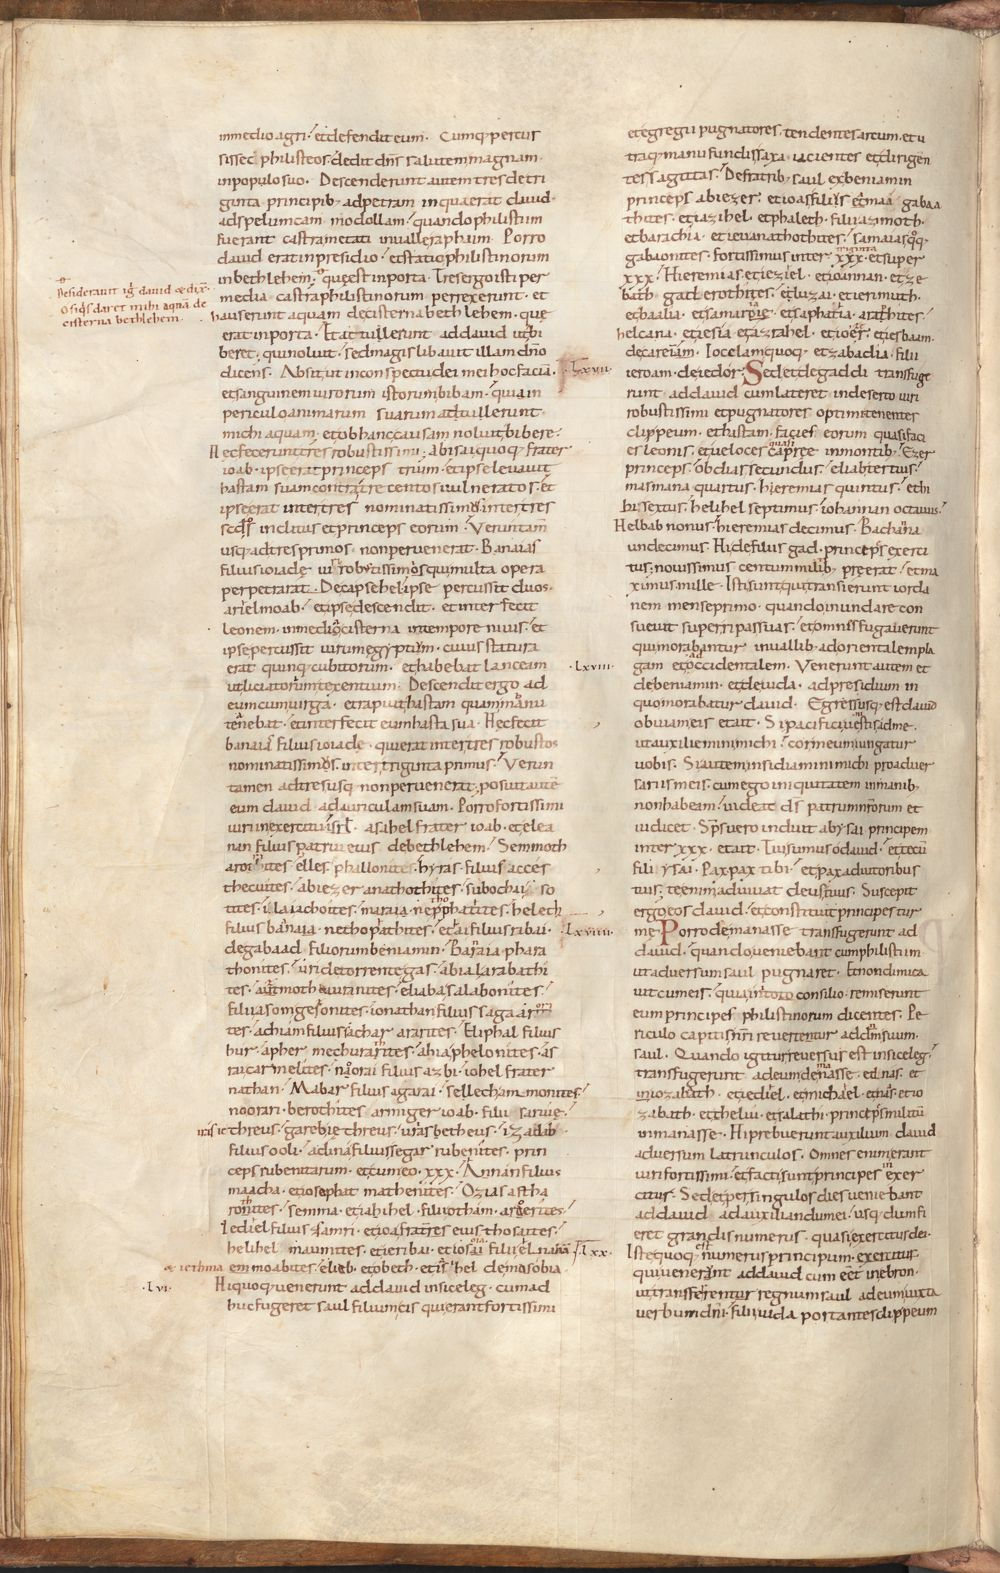 inmedio agri. et defendit eum. Cumq; percus
sissec philisteos. dedit dñs salutem magnam
inpopulo suo. Descenderunt autem tres de tri
ginta principib; ad petram in qua erat david.
ad speluncam modollam. quando philistiim
fuerant castrametati in valle raphaim. Porro
david erat inpresidio. et statio philistinorum
in bethlehem. quę est inporta. Tres ergo isti per
media castra philistinorum perrexerunt. et
hauserunt aquam de cisterna bethlehem. quę
erat inporta. Et attullerunt ad david ut bi
beret. qui noluit. sed magis libavit illam dño
dicens. Absit ut inconspectu dei mei hoc faciā.
et sanguinem virorum istorum bibam. quia in
periculo animarum suarum attullerunt
michi aquam. et ob hanc causam noluit bibere.
Hec fecerunt tres robustissimi. Abisai quoq; frater
ioab. ipse erat princeps trium. et ipse levavit
hastam suam contra trecentos vulneratos. et
ipse erat inter tres nominatissimus. inter tres
scđos inclitus et princeps eorum. Veruntam̄
usq; ad tres primos. non pervenerat. Banaias
filius ioiade viri robustissimi. qui multa opera
perpetrarat. De capsehel ipse percussit duos
ariel moab. et ipse descendit. et inter fecit
leonem. inmedio cisterna intempore nivis. et
ipse percussit virum egyptium. cuius statura
erat quinq; cubitorum. et habebat lanceam
ut liciatorum texentium. Descendit ergo ad
eum cum virga. et rapuit hastam quam manu
tenebat. et interfecit eum hasta sua. Hec fecit
banaia filius ioiade. qui erat inter tres robustos
nominatissimos. inter triginta primus. Verun
tamen ad tres usq; non pervenerat. posuit autē
eum david ad auriculam suam. Porro fortissimi
viri inexercitu isrl. asahel frater ioab. et elea
nan filius patrui eius de bethlehem. Semmoth
arorites. elles phallonites. hyras filius acces
thecuites. abiezer anathothites. subochai so
tites. ilai achoites. marai nephatites. heleth
filius banaia. nethophathites. ethai filius ribai.
de gabaad filiorum beniamin. Banaia phara
thonites. uri de torrente gas. abial arabathi
tes. azmoth bauranites. eliaba salabonites.
filii asom gesonites. ionathan filius saga arari
tes. achiam filius sachar ararites. Eliphal filius
hur. apher mechurathites. ahia phelonites. as
rai carmelites. naorai filius azbi. iohel frater
nathan. Mabar filius agarai. sellech ammonites.
noorai. berothites armiger ioab. filii sarvie.
iras iethreus. gareb iethreus. urias hetheus. izadab
filius ooli. adina filius segar rubenites. prin
ceps rubenitarum. et cum eo .xxx. Annan filius
maacha. et iosephat mathenites. Ozias astha
ronites. semma. et iahihel. filii otham. arorites.
Iediel filius samri. et ioa frater eius. thosaites.
helihel maumites. et ieribai. et iosai filii elnaham
et iethma emmoabites. elieb. et obeth. et isihel de masobia
Hi quoq; venerunt ad david in siceleg. cum ad
huc fugeret saul filium cis. qui erant fortissimi
Desiderauit igr̄ dauid & dix̄.
O siq̄s daret mihi aquā de
cisterna bethlehem.
.lxvii.
.lxviii.
.lxviiii.
.lxx.
.lvi.
et egregii pugnatores. tendentes arcum. et u
traq; manu fundis saxa iacientes et dirigen
tes sagittas. De fratrib; saul ex beniamin
princeps abiezer. et ioas filius semaa gabaa
thites. et iazihel. et phaleth. filii azmoth.
et barachia. et ieu anathothites. samaias quoq;
gabaonites. fortissimus inter xxx. et super
xxx. Hieremias. et ieziel. et iohannan. et ze
bath gad erothites. et luzai. et ierimuth.
et baalia. et samarie. et saphatia. arathites.
helcana. et iesia. et azrahel. et ioer. et iesbaam.
de careiam. Iocelam quoq; et zabadia. filii
ieroam. de iedor. Sed et de gaddi transfuge
runt ad david cum lateret indeserto viri
robustissimi et pugnatores optimi. tenentes
clippeum. et hastam. facies eorum quasi faci
es leonis. et veloces quasi caprę inmontib; Ezer
princeps. obdias secundus. eliab tertius.
masmana quartus. hieremias quintus. ethi
bi sextus. helihel septimus. iohannan octavus.
Helbab nonus. hieremias decimus. Bachana
undecimus. Hi de filiis gad. principes exerci
tus. novissimus centum militib; preerat. et ma
ximus mille. Isti sunt qui transierunt iorda
nem mense primo. quando inundare con
suevit super ripas suas. et omnis fugaverunt
qui morabantur invallib; ad orientalem pla
gam et ad occidentalem. Venerunt autem et
de beniamin. et de iuda. ad presidium in
quo morabatur david. Egressusq; est david
obviam eis et ait. Si pacifici venistis ad me.
ut auxiliemini michi. cor meum iungatur
vobis. Si autem insidiamini michi pro adver
sariis meis. cum ego iniquitatem inmanib;
non habeam. videat dš patrum nr̄orum et
iudicet. Sp̄s vero induit abysai principem
inter xxx. et ait. Tui sumus o david. et tecū
fili ysai. Pax pax tibi. et pax adiutoribus
tuis. te enim adiuvat deus tuus. Suscepit
ergo eos david. et constituit principes tur
me. Porro de manasse transfugerunt ad
david. quando veniebant cum philistiim
ut adversum saul pugnaret. Et non dimica
vit cum eis. quia inito consilio. remiserunt
eum principes philistinorum dicentes. Pe
riculo capitis nr̄i revertentur ad dominum suum.
saul. Quando igitur reversus est insiceleg.
transfugerunt ad eum de manasse. ednas. et
iozabath. et iediel. et michael. et nas. et io
zabath. et heliu. et salathi. principes militū
inmanasse. Hi prebuerunt auxilium david
adversum latrunculos. Omnes enim erant
viri fortissimi. et facti sunt principes in exer
citu. Sed et per singulos dies veniebant
ad david ad auxiliandum ei. usq; dum fi
eret grandis numerus. quasi exercitus dei.
Iste quoq; est numerus principum exercitus
qui venerant ad david cum eēt inebron.
ut transferrent regnum saul ad eum. iuxta
verbum dñi. filii iuda portantes clippeum